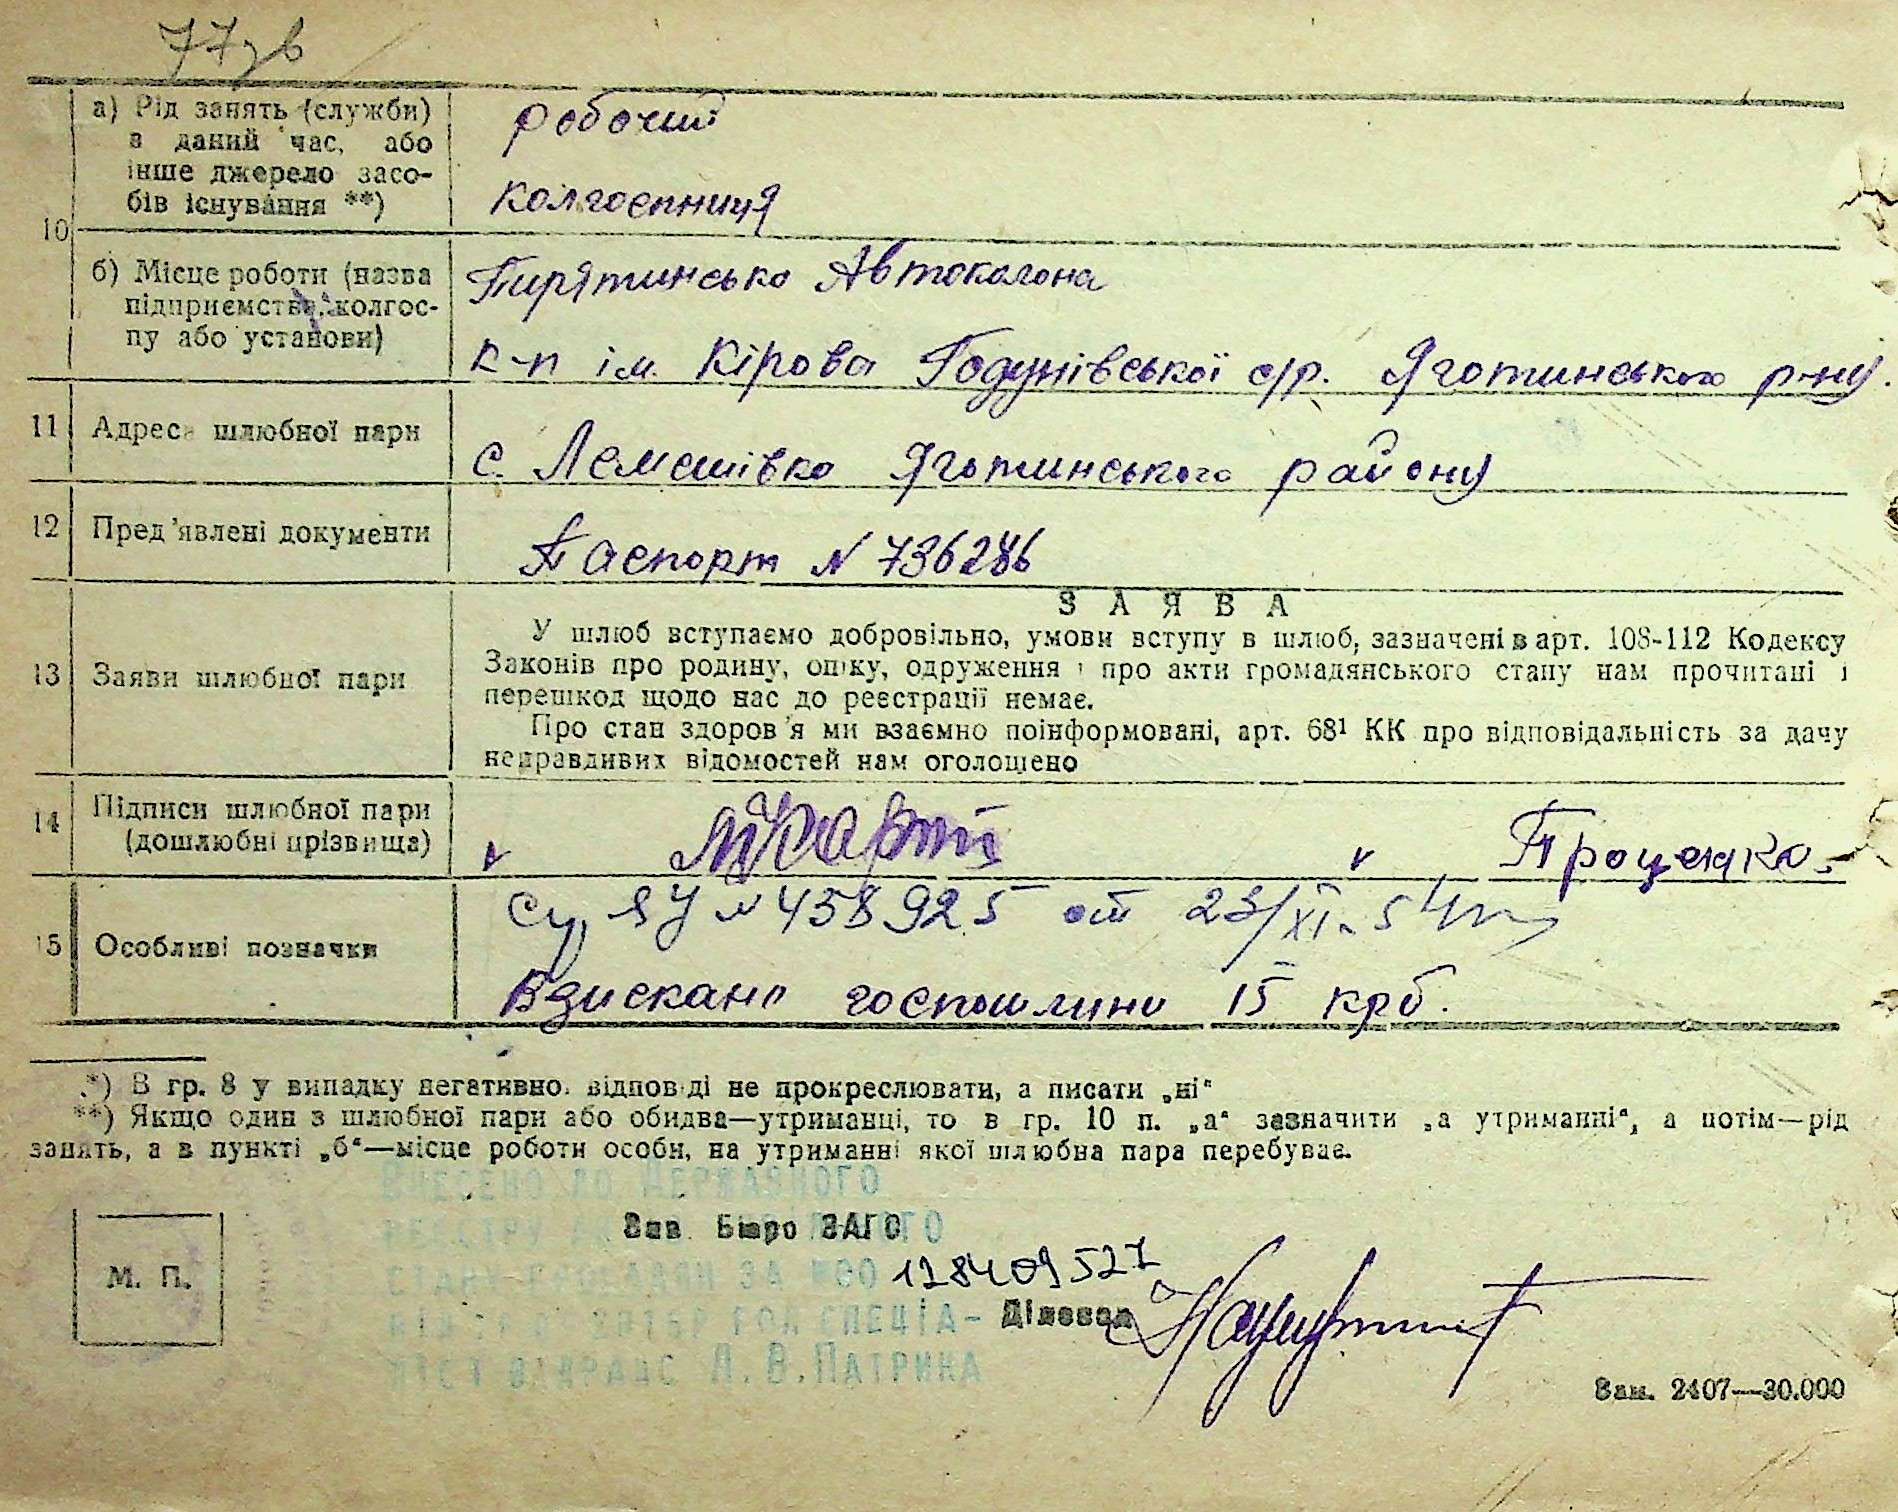 77зв
а) Рід занять (служби)
в даний час, або
інше джерело засо-
бів існування **)
робочий
колгоспниця
10
б) Місце роботи (назва
підприємства, колгос-
пу або установи)
Пирятинсько Автоколона
к-п ім. Кірова Годунівської с/р. Яготинського р-ну.
11 Адреса шлюбної пари
с. Лемешівка Яготинського району
12 Пред'явлені документи
Паспорт N 736286
13 Заяви шлюбної пари
ЗАЯВА
У шлюб вступаємо добровільно, умови вступу в шлюб, зазначені в арт. 108-112 Кодексу
Законів про родину, опіку, одруження і про акти громадянського стану нам прочитані і
перешкод щодо нас до реєстрації немає.
Про стан здоров'я ми взаємно поінформовані, арт. 68¹ КК про відповідальність за дачу
неправдивих відомостей нам оголошено
14 Підписи шлюбної пари
(дошлюбні прізвища)
v v Проценко.
15 Особливі позначки
N 458925 от 23/XI-54
Взискано госпошлини 15 крб.
*) В гр. 8 у випадку негативної відповіді не прокреслювати, а писати „ні"
**) Якщо один з шлюбної пари або обидва—утриманці, то в гр. 10 п. „а" зазначити „а утриманні", а потім—рід
занять, а в пункті „б"—місце роботи особи, на утриманні якої шлюбна пара перебуває.
Внесено до Державного
реєстру
Зав. Бюро ЗАГС
стану громадян за №00 128409527
М. П.
Діловод
спеціа-
ліст Л. В. Патрика
Зам. 2407—30.000